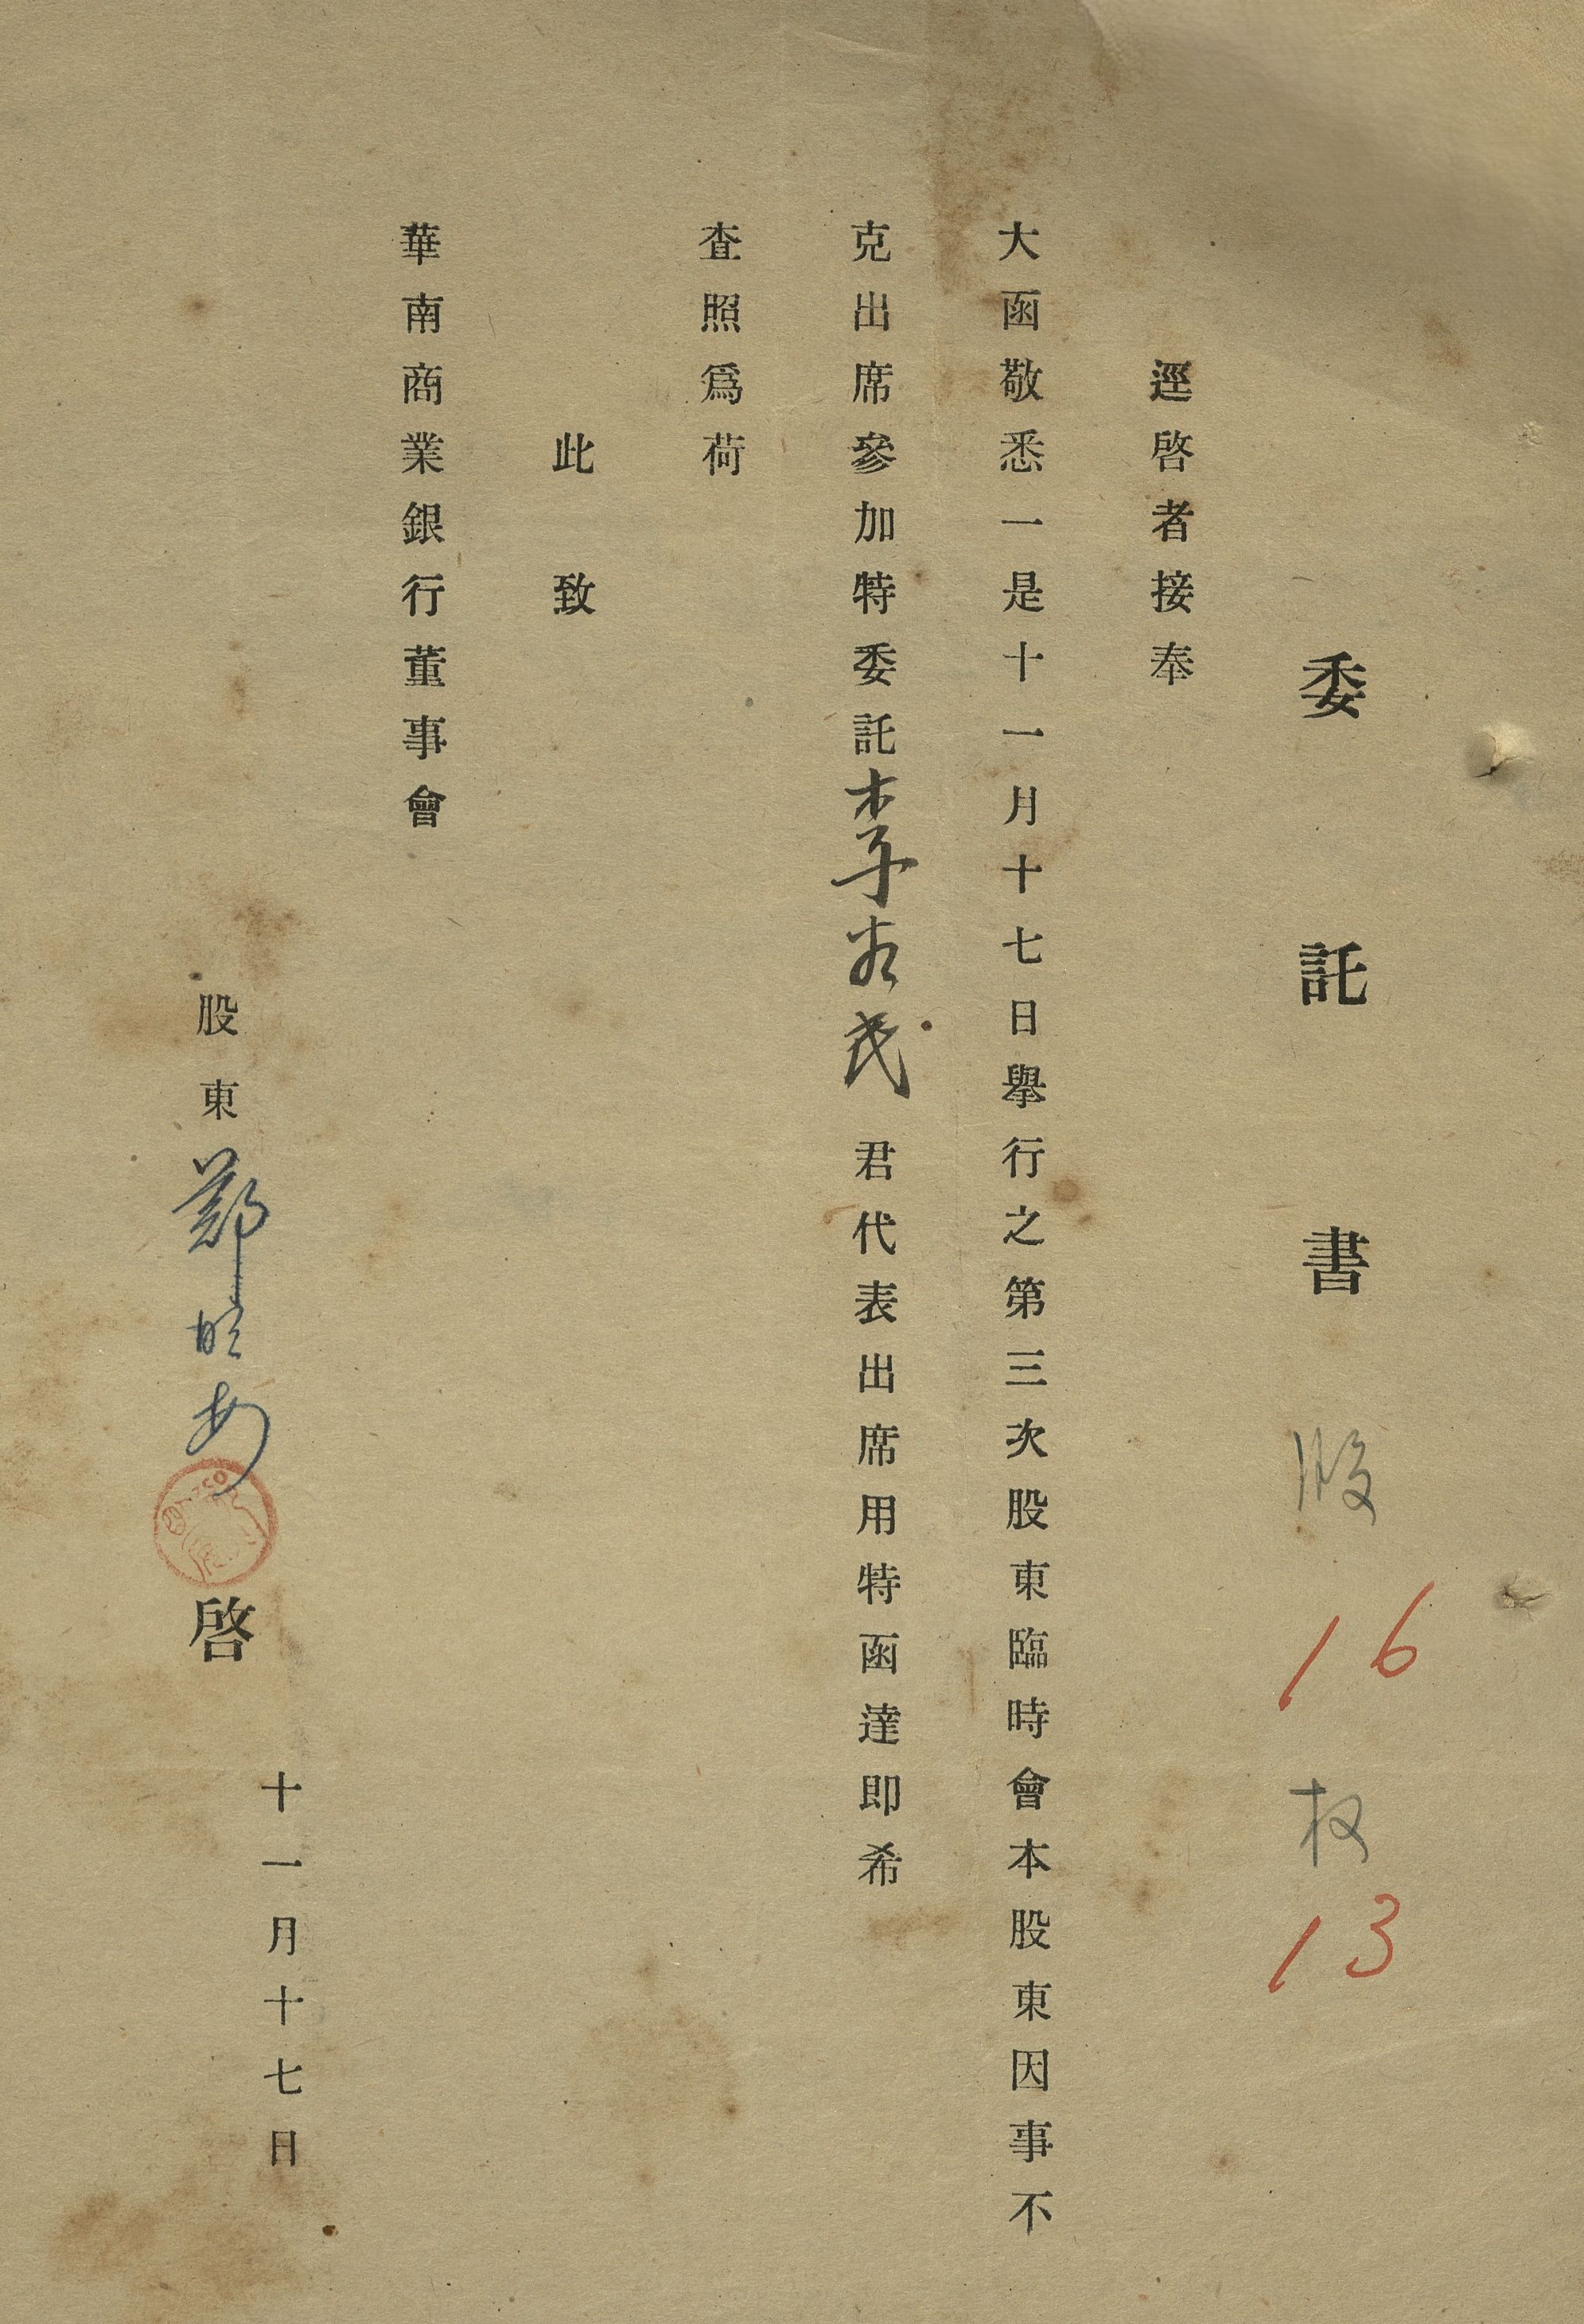 委託書 股 16 权 13
逕啓者接奉
大函敬悉一是十一月十七日舉行之第三次股東臨時會本股東因事不
克出席參加特委託李 民君代表出席用特函達即希
查照爲荷
此致
華南商業銀行董事會
十一月十七日
股東鄭 啓